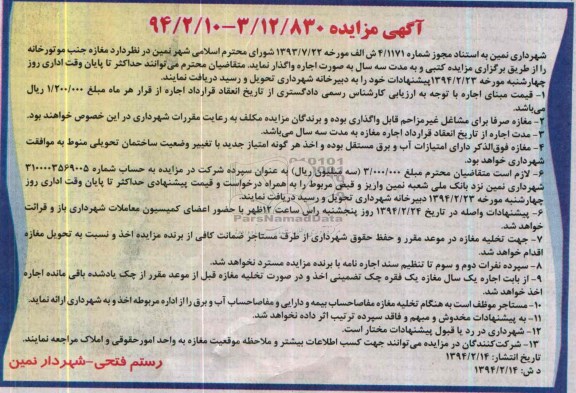 آگهی مزایده ۳/۱۲/۸۳۰-۹۴/۲/۱۰
شهرداری نمین به استناد مجوز شماره ۴/۱۱۷۱ ش الف مورخه ۱۳۹۳/۷/۲۲ شورای محترم اسلامی شهر نمین در نظردارد مغازه جنب موتورخانه
را از طریق برگزاری مزایده کتبی و به مدت سه سال به صورت اجاره واگذار نماید. متقاضیان محترم می‌توانند حداکثر تا پایان وقت اداری روز
چهارشنبه مورخه ۱۳۹۴/۲/۲۳ پیشنهادات خود را به دبیرخانه شهرداری تحویل و رسید دریافت نمایند.
۱- قیمت مبنای اجاره با توجه به ارزیابی کارشناس رسمی دادگستری از تاریخ انعقاد قرارداد اجاره از قرار هر ماه مبلغ ۱/۲۰۰/۰۰۰ ریال
می‌باشد.
۲- مغازه صرفا برای مشاغل غیرمزاحم قابل واگذاری بوده و برندگان مزایده مکلف به رعایت مقررات شهرداری در این خصوص خواهند بود.
۳- مدت اجاره از تاریخ انعقاد قرارداد اجاره مغازه به مدت سه سال می‌باشد.
۴- مغازه فوق‌الذکر دارای امتیازات آب و برق مستقل بوده و اخذ هر گونه امتیاز جدید با تغییر وضعیت ساختمان تحویلی منوط به موافقت
شهرداری خواهد بود.
۵- لازم است متقاضیان محترم مبلغ ۳/۰۰۰/۰۰۰ (سه میلیون ریال) به عنوان سپرده شرکت در مزایده به حساب شماره ۳۱۰۰۰۰۳۵۶۹۰۰۵
شهرداری نمین نزد بانک ملی شعبه نمین واریز و قبض مربوط را به همراه درخواست و قیمت پیشنهادی حداکثر تا پایان وقت اداری روز
چهارشنبه مورخه ۱۳۹۴/۲/۲۳ دبیرخانه شهرداری تحویل و رسید دریافت نمایند.
۶- پیشنهادات واصله در تاریخ ۱۳۹۴/۲/۲۴ روز پنجشنبه راس ساعت ۱۲ظهر با حضور اعضای کمیسیون معاملات شهرداری باز و قرائت
خواهد شد.
۷- جهت تخلیه مغازه در موعد مقرر و حفظ حقوق شهرداری از طرف مستاجر ضمانت کافی از برنده مزایده اخذ و نسبت به تحویل مغازه
اقدام خواهد شد.
۸- سپرده نفرات دوم و سوم تا تنظیم سند اجاره نامه با برنده مزایده مسترد نخواهد شد.
۹- از بابت اجاره یک سال مغازه یک فقره چک تضمینی اخذ و در صورت تخلیه مغازه قبل از موعد مقرر از چک یادشده باقی مانده اجاره
اخذ خواهد شد.
۱۰- مستاجر موظف است به هنگام تخلیه مغازه مفاصاحساب بیمه و دارایی و مفاصاحساب آب و برق را از اداره مربوطه اخذ و به شهرداری ارائه نماید.
۱۱- به پیشنهادات مخدوش و مبهم و فاقد سپرده ترتیب اثر داده نخواهد شد.
۱۲- شهرداری در رد یا قبول پیشنهادات مختار است.
۱۳- شرکت‌کنندگان در مزایده می‌توانند جهت کسب اطلاعات بیشتر و ملاحظه موقعیت مغازه به واحد امورحقوقی و املاک مراجعه نمایند.
تاریخ انتشار: ۱۳۹۴/۲/۱۴
د ش: ۱۳۹۴/۲/۱۴
رستم فتحی-شهردار نمین
ParsNamadData